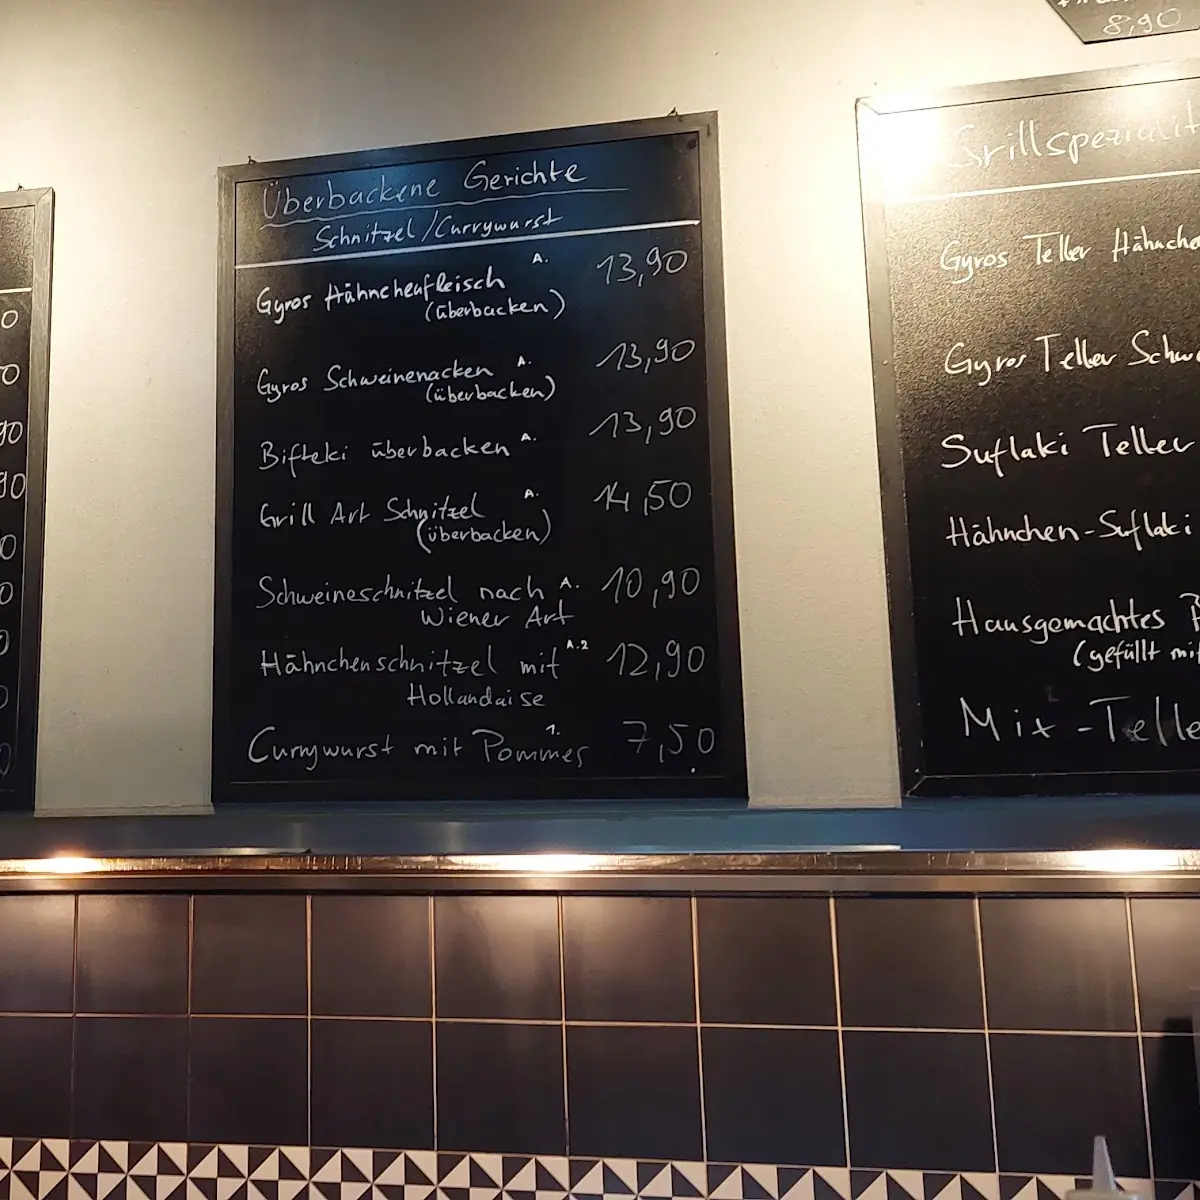 8,90
0
0
90
90
0
0
0
0
0
Überbackene Gerichte
Schnitzel/Currywurst
Gyros Hähnchenfleisch A. 13,90
(überbacken)
Gyros Schweinenacken A. 13,90
(überbacken)
Bifteki überbacken A. 13,90
Grill Art Schnitzel A. 14,50
(überbacken)
Schweineschnitzel nach A. 10,90
Wiener Art
Hähnchenschnitzel mit A.2 12,90
Hollandaise
Currywurst mit Pommes 1. 7,50
Grillspezialit
Gyros Teller Hähnche
Gyros Teller Schw
Suflaki Teller
Hähnchen-Suflaki
Hausgemachtes
(gefüllt mit
Mix-Telle